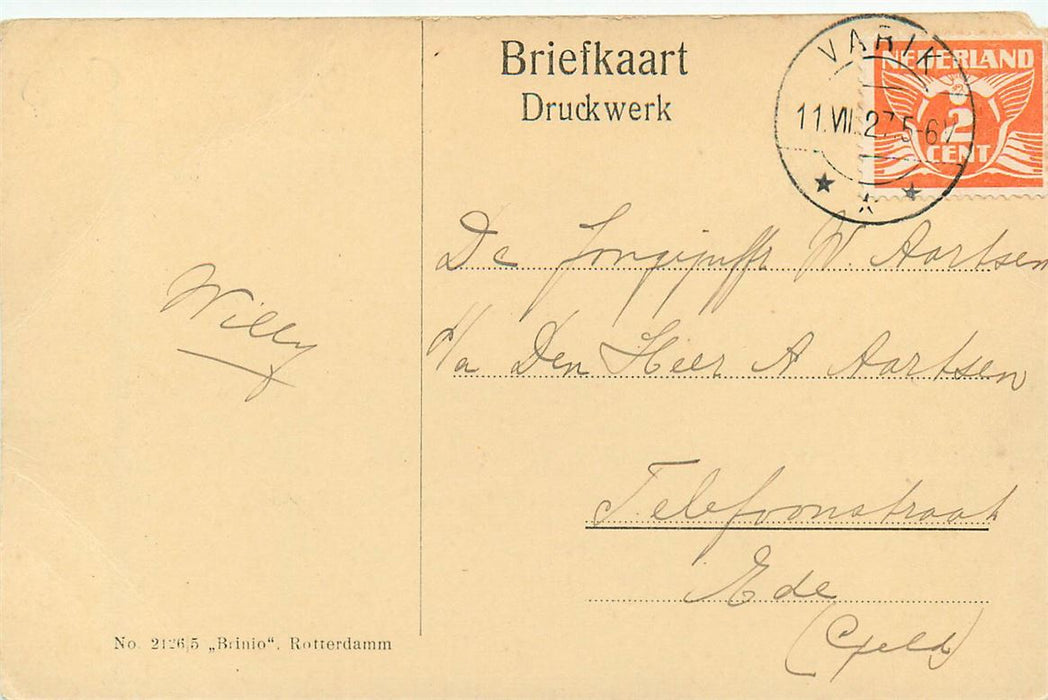 Briefkaart
Druckwerk
VARIK
11.VII.27.5-6N
NEDERLAND
2
CENT
De Jongejuffr W. Aartsen
p/a Den Heer A Aartsen
Telefoonstraat
Ede
(Geld)
Willy
No. 2126/5 „Brinio“. Rotterdamm